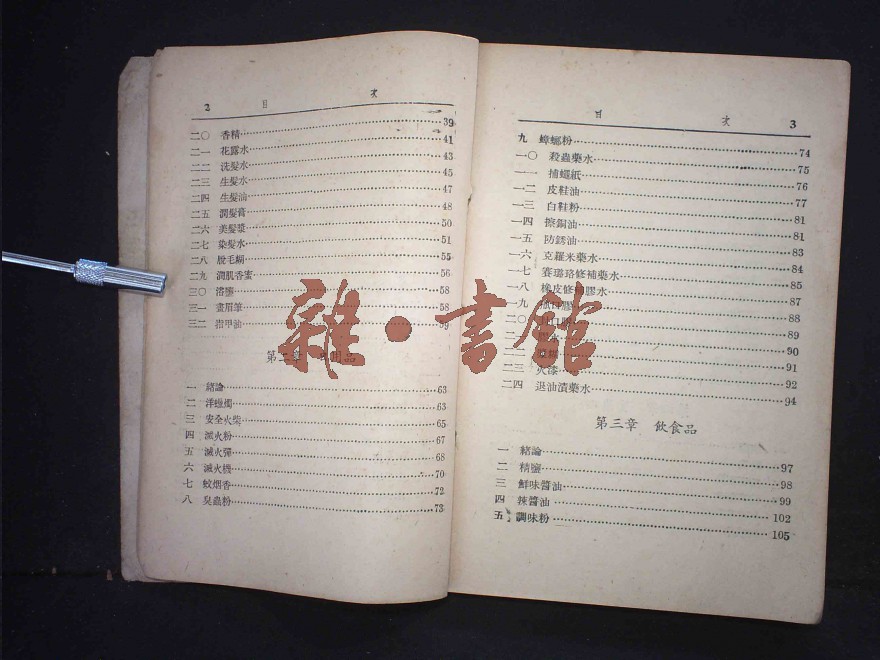 2 目 次
二〇 香精 39
二一 花露水 41
二二 洗髮水 43
二三 生髮水 45
二四 生髮油 47
二五 潤髮膏 48
二六 美髮漿 50
二七 染髮水 51
二八 脫毛糊 55
二九 潤肌香蜜 56
三〇 浴鹽 58
三一 畫眉筆 58
三二 指甲油 59
第二章 日用品
一 緒論 63
二 洋蠟燭 63
三 安全火柴 65
四 滅火粉 67
五 滅火彈 68
六 滅火機 70
七 蚊烟香 72
八 臭蟲粉 73
目 次 3
九 蟑螂粉 74
一〇 殺蟲藥水 75
一一 捕蠅紙 76
一二 皮鞋油 77
一三 白鞋粉 81
一四 擦銅油 81
一五 防銹油 83
一六 克羅米藥水 84
一七 賽璐珞修補藥水 85
一八 橡皮修補膠水 87
一九 88
二〇 89
90
91
二三 火漆 92
二四 退油漬藥水 94
第三章 飲食品
一 緒論 97
二 精鹽 98
三 鮮味醬油 99
四 辣醬油 102
五 調味粉 105
雜·書館